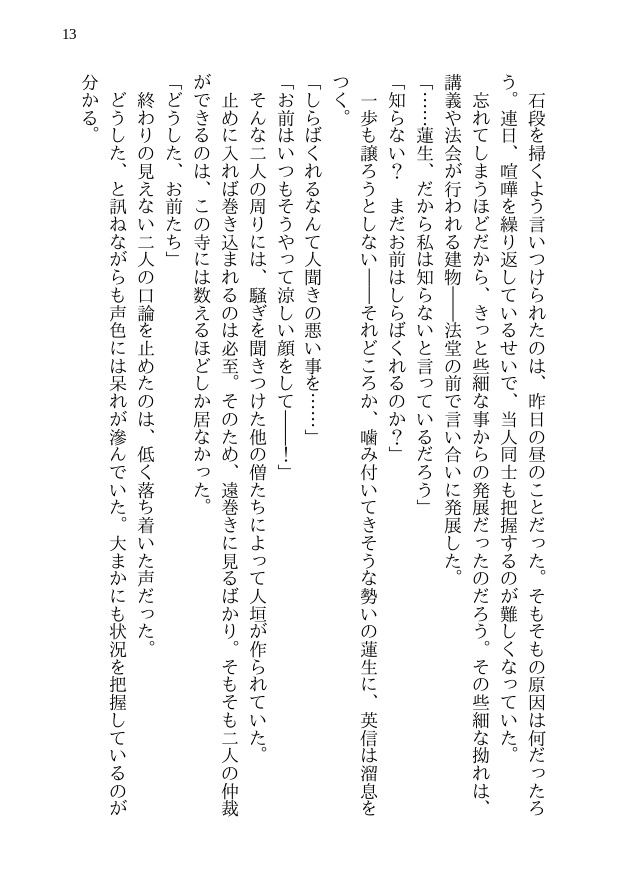 13
　石段を掃くよう言いつけられたのは、昨日の昼のことだった。そもそもの原因は何だったろ
う。連日、喧嘩を繰り返しているせいで、当人同士も把握するのが難しくなっていた。
　忘れてしまうほどだから、きっと些細な事からの発展だったのだろう。その些細な拗れは、
講義や法会が行われる建物――法堂の前で言い合いに発展した。
「……蓮生、だから私は知らないと言っているだろう」
「知らない？　まだお前はしらばくれるのか？」
　一歩も譲ろうとしない――それどころか、噛み付いてきそうな勢いの蓮生に、英信は溜息を
つく。
「しらばくれるなんて人聞きの悪い事を……」
「お前はいつもそうやって涼しい顔をして――！」
　そんな二人の周りには、騒ぎを聞きつけた他の僧たちによって人垣が作られていた。
　止めに入れば巻き込まれるのは必至。そのため、遠巻きに見るばかり。そもそも二人の仲裁
ができるのは、この寺には数えるほどしか居なかった。
「どうした、お前たち」
　終わりの見えない二人の口論を止めたのは、低く落ち着いた声だった。
　どうした、と訊ねながらも声色には呆れが滲んでいた。大まかにも状況を把握しているのが
分かる。